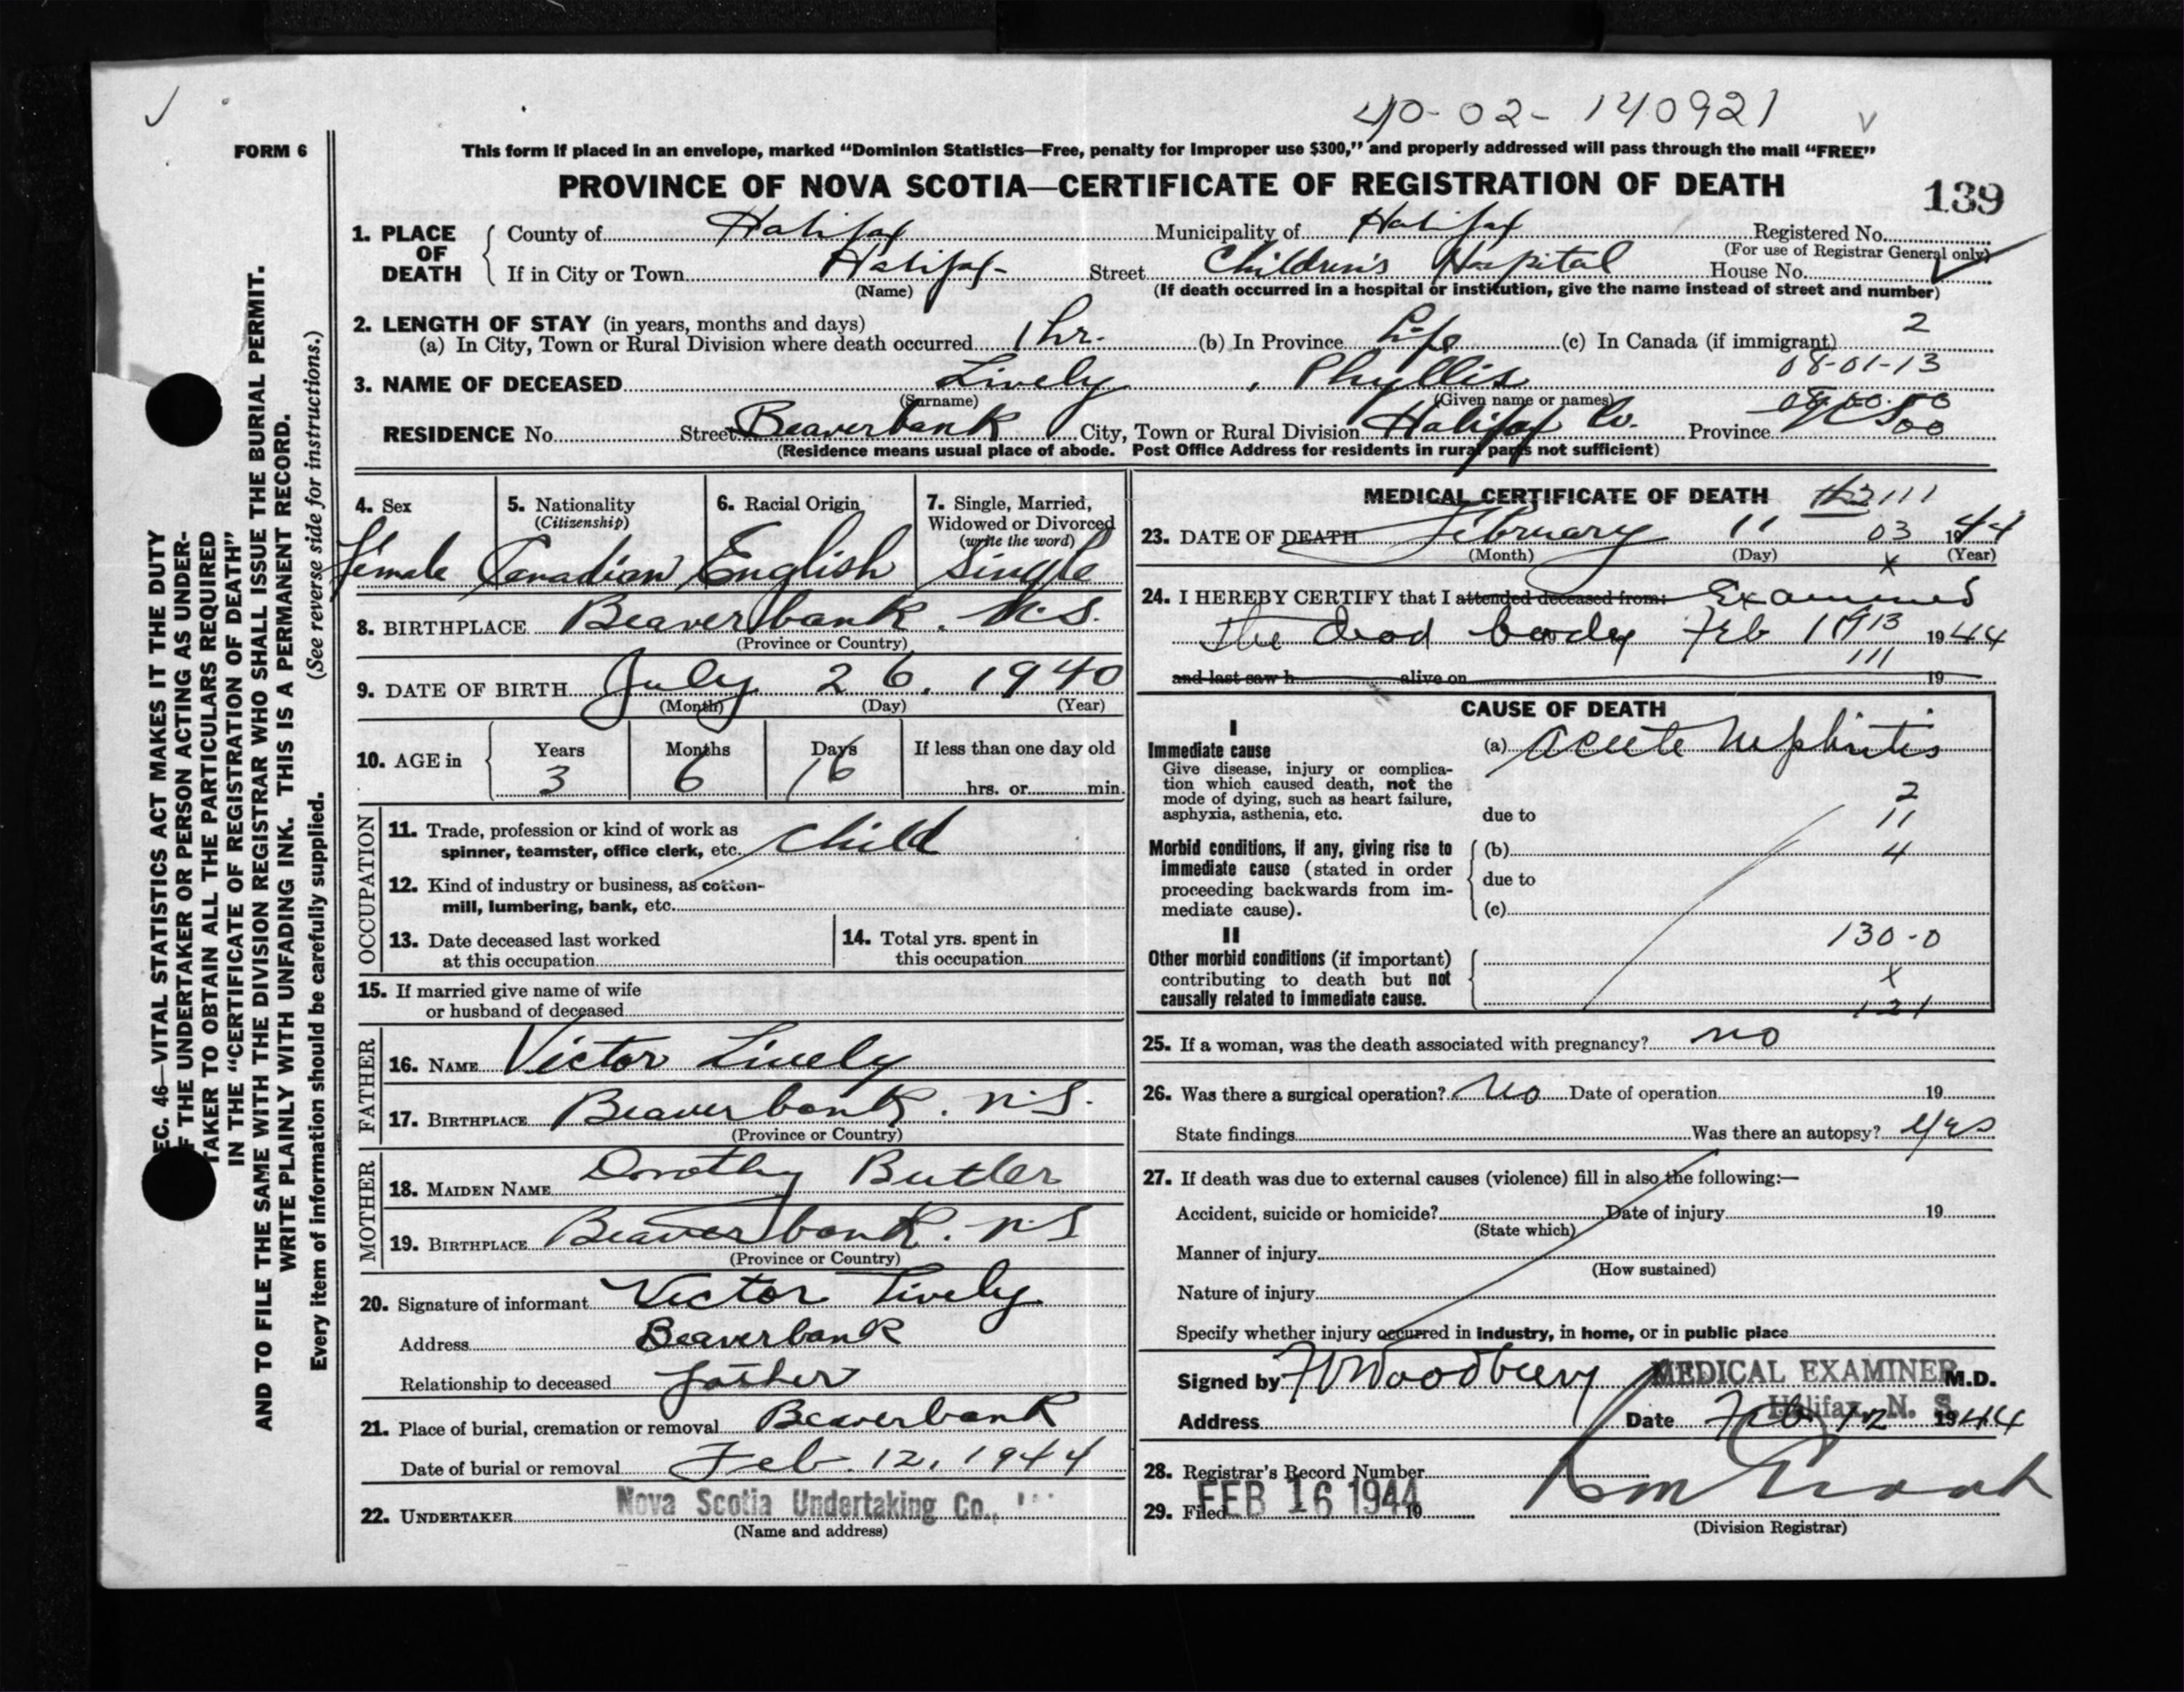 40-02-140921
FORM 6
This form if placed in an envelope, marked “Dominion Statistics—Free, penalty for improper use $300,” and properly addressed will pass through the mail “FREE”
PROVINCE OF NOVA SCOTIA—CERTIFICATE OF REGISTRATION OF DEATH
139
1. PLACE OF DEATH
County of Halifax Municipality of Halifax Registered No.
(For use of Registrar General only)
If in City or Town Halifax Street Children's Hospital House No.
(Name) (If death occurred in a hospital or institution, give the name instead of street and number)
2. LENGTH OF STAY (in years, months and days)
(a) In City, Town or Rural Division where death occurred 1 hr. (b) In Province Life (c) In Canada (if immigrant) 2
08-01-13
3. NAME OF DECEASED Lively, Phyllis
(Surname) (Given name or names)
RESIDENCE No. Street Beaverbank City, Town or Rural Division Halifax Co. Province
(Residence means usual place of abode. Post Office Address for residents in rural parts not sufficient)
4. Sex
Female
5. Nationality
(Citizenship)
Canadian
6. Racial Origin
English
7. Single, Married,
Widowed or Divorced
(write the word)
Single
8. BIRTHPLACE Beaverbank. N.S.
(Province or Country)
9. DATE OF BIRTH July 26, 1940
(Month) (Day) (Year)
10. AGE in
Years Months Days If less than one day old
3 6 16 hrs. or min.
OCCUPATION
11. Trade, profession or kind of work as
spinner, teamster, office clerk, etc. Child
12. Kind of industry or business, as cotton-
mill, lumbering, bank, etc.
13. Date deceased last worked
at this occupation
14. Total yrs. spent in
this occupation
15. If married give name of wife
or husband of deceased
FATHER
16. NAME Victor Lively
17. BIRTHPLACE Beaverbank. N.S.
(Province or Country)
MOTHER
18. MAIDEN NAME Dorothy Butler
19. BIRTHPLACE Beaverbank. N.S
(Province or Country)
20. Signature of informant Victor Lively
Address Beaverbank
Relationship to deceased father
21. Place of burial, cremation or removal Beaverbank
Date of burial or removal Feb. 12, 1944
22. UNDERTAKER Nova Scotia Undertaking Co.,
(Name and address)
MEDICAL CERTIFICATE OF DEATH
111
23. DATE OF DEATH February 11 03 1944
(Month) (Day) (Year)
x
24. I HEREBY CERTIFY that I attended deceased from: Examined
the dead body Feb 11 13 1944
111
and last saw h alive on 19
CAUSE OF DEATH
I
Immediate cause
Give disease, injury or complica-
tion which caused death, not the
mode of dying, such as heart failure,
asphyxia, asthenia, etc.
(a) Acute Nephritis
2
due to 11
Morbid conditions, if any, giving rise to
immediate cause (stated in order
proceeding backwards from im-
mediate cause).
(b) 4
due to
(c)
130-0
II
Other morbid conditions (if important)
contributing to death but not
causally related to immediate cause.
x
121
25. If a woman, was the death associated with pregnancy? no
26. Was there a surgical operation? No Date of operation 19
State findings Was there an autopsy? yes
27. If death was due to external causes (violence) fill in also the following:—
Accident, suicide or homicide? Date of injury 19
(State which)
Manner of injury
(How sustained)
Nature of injury
Specify whether injury occurred in industry, in home, or in public place
Signed by Woodbury MEDICAL EXAMINER M.D.
Halifax, N. S.
Address Date Feb 12 1944
28. Registrar's Record Number
29. Filed FEB 16 1944 19
(Division Registrar)
SEC. 46—VITAL STATISTICS ACT MAKES IT THE DUTY
OF THE UNDERTAKER OR PERSON ACTING AS UNDER-
TAKER TO OBTAIN ALL THE PARTICULARS REQUIRED
IN THE “CERTIFICATE OF REGISTRATION OF DEATH”
AND TO FILE THE SAME WITH THE DIVISION REGISTRAR WHO SHALL ISSUE THE BURIAL PERMIT.
WRITE PLAINLY WITH UNFADING INK. THIS IS A PERMANENT RECORD.
Every item of information should be carefully supplied. (See reverse side for instructions.)